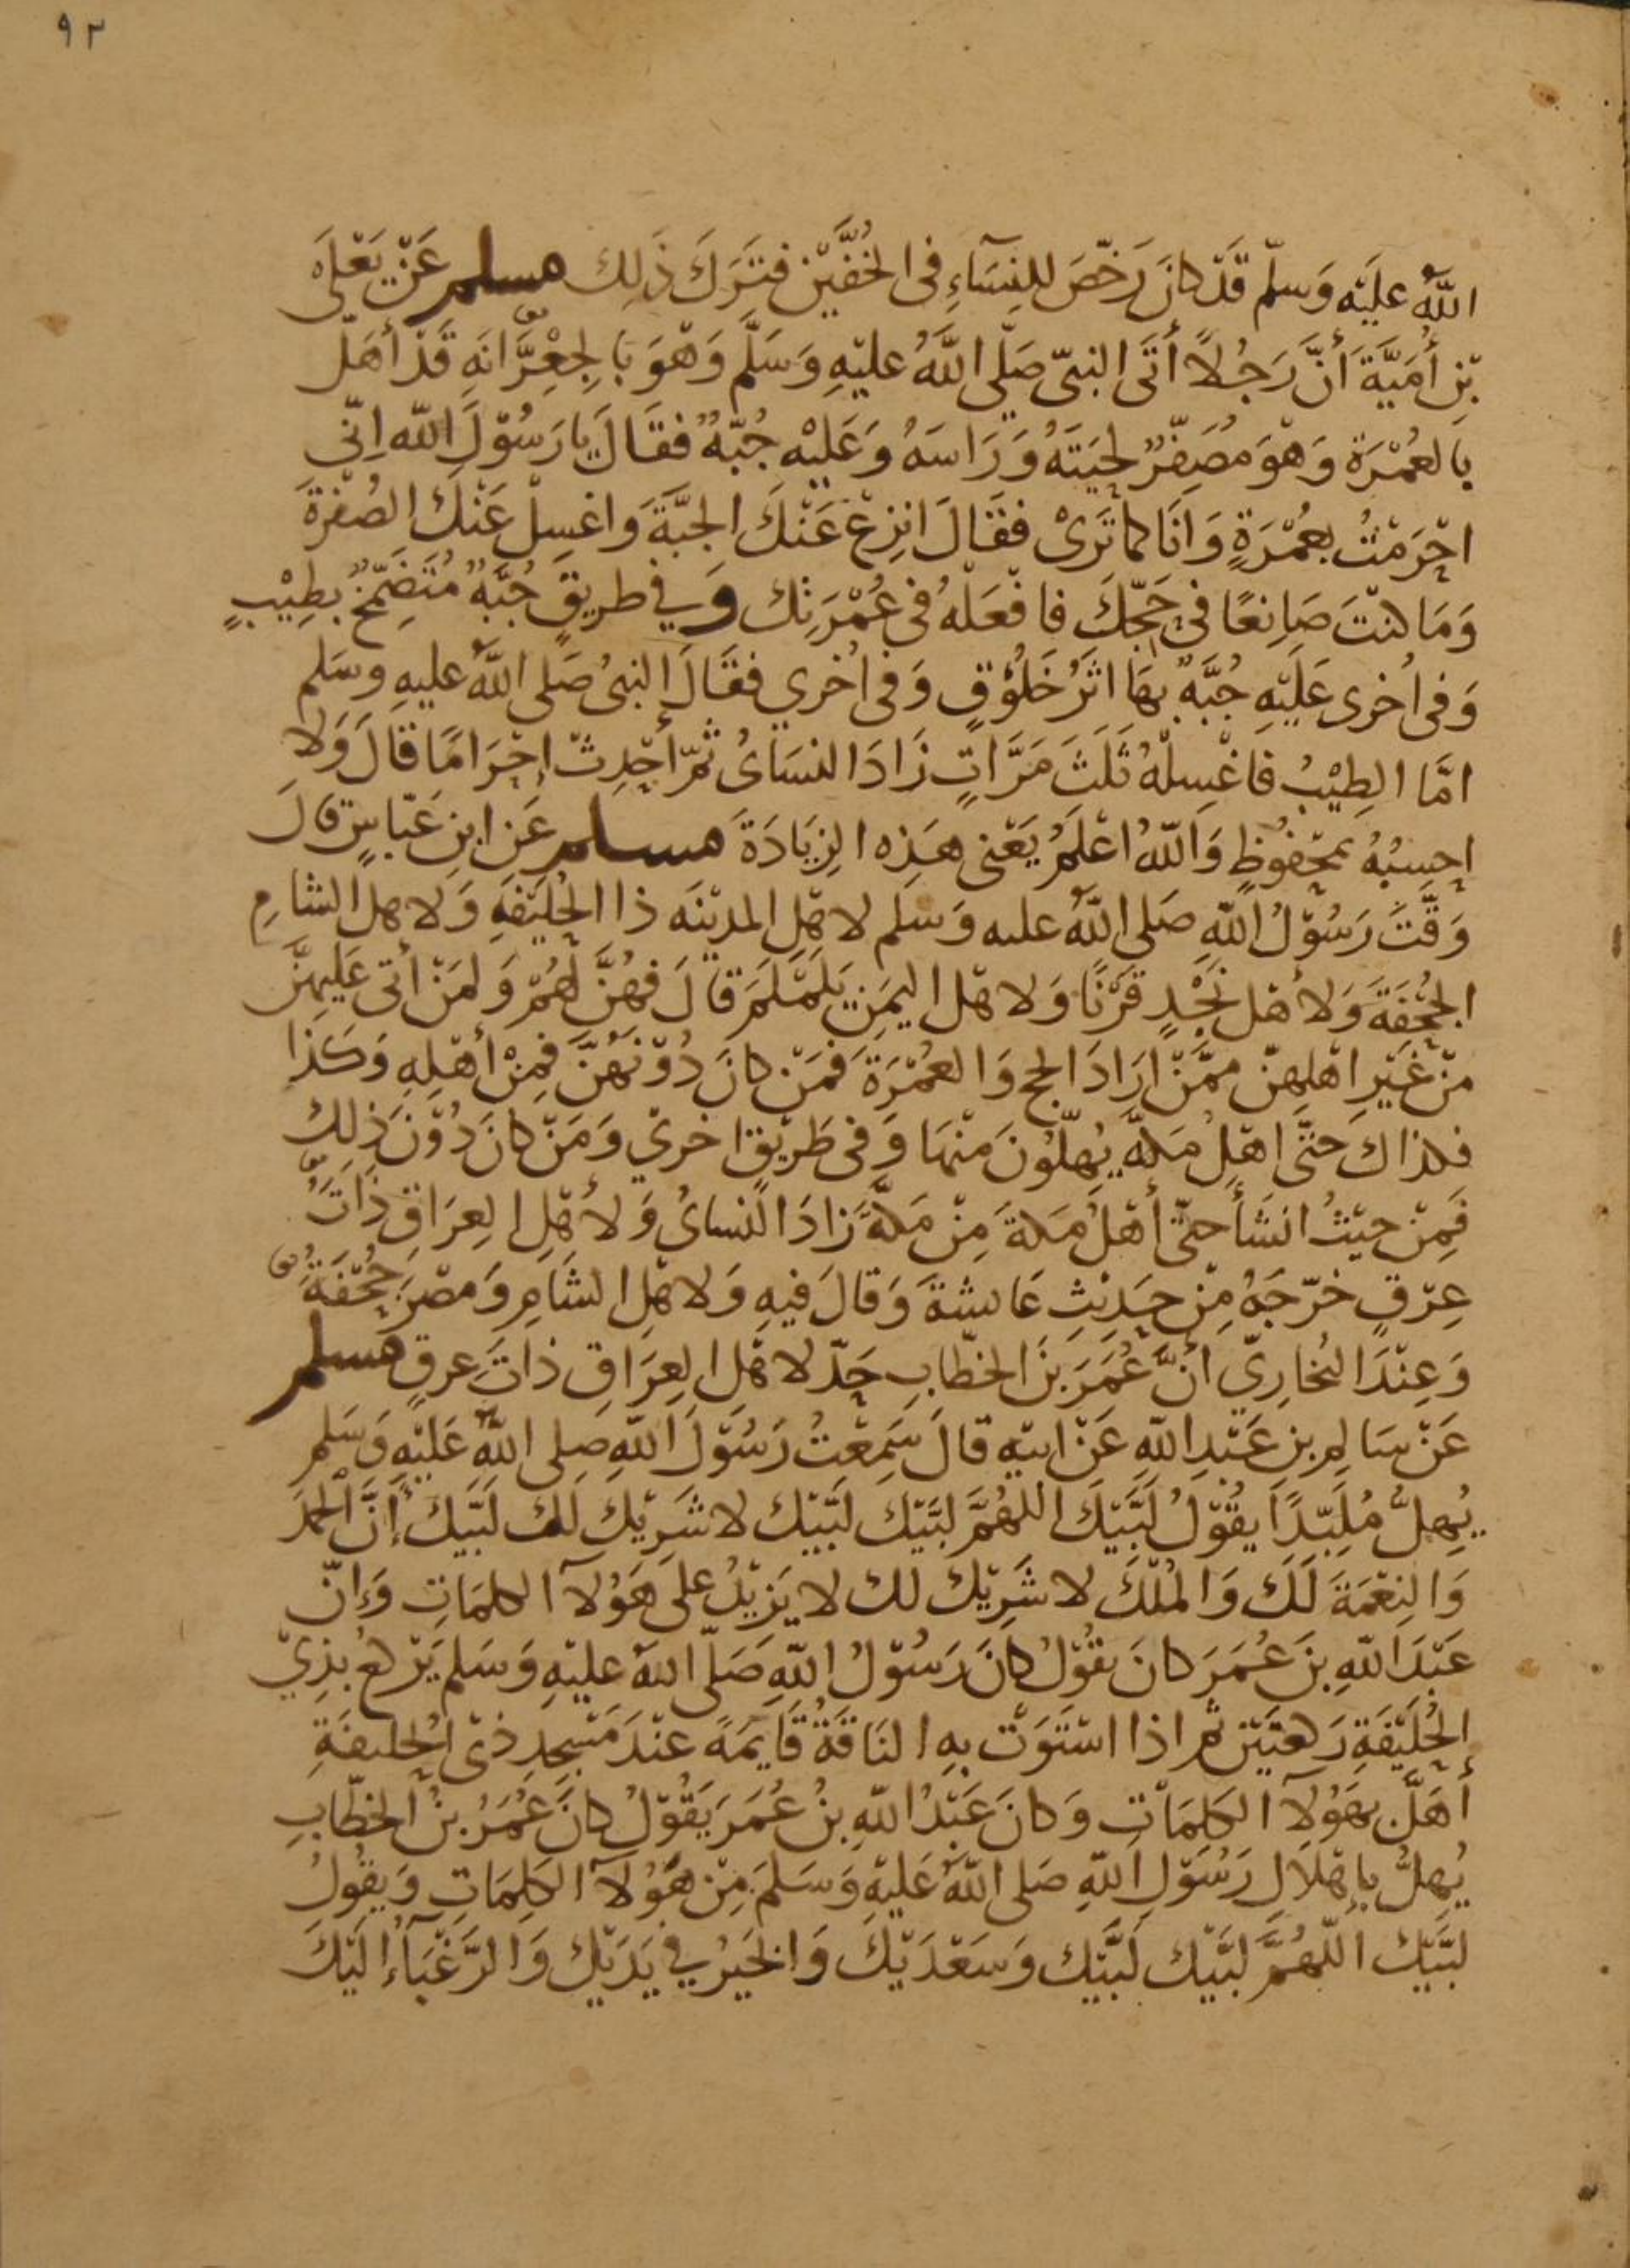 ٩٢
اللَّهُ عليَه وَسلّم قَدْ كانَ رَخّصَ للنِسَآءِ فى الخُفَّيْن فتَرَكَ ذَلِك مسلم عَنْ يَعْلَى
بْنِ أُمَيَّةَ أَنَّ رَجُلاً أَتَى النبىّ صَلّى اللَّهُ عليْهِ وَسَلَّم وَهْوَ بِالجِعْرَّانَهِ قَدْ أهَلّ
بالعُمْرَة وَهْوَ مُصَفِّرٌ لحِيَتَهُ وَرَاسَهُ وَعَليْه جُبّهٌ فقَالَ يا رَسُوْلَ الله اِنّى
احْرَمْتُ بعُمْرَةٍ وَانَا كما تَرَىْ فقَالَ انزِعْ عَنْكَ الجبَّةَ وَاغسِلْ عَنْكَ الصُفْرَةَ
وَمَا كنْتَ صَانِعًا فى حَجّكَ فافْعَلْهُ فى عُمْرَتِك وَفي طريقٍ جُبَّهٌ مُتَضَمِّخٌ بطِيْبٍ
وَفى اُخرى عَليْهِ جُبَّهٌ بهَا اثَرُ خَلُوْقٍ وَفى اُخري فقَالَ النبىُ صَلى اللَّهُ عليهِ وسَلم
امَّا الطِيْبُ فاغْسِلْهُ ثَلَثَ مَرَّاتٍ زَادَ النسَاىُ ثمّ أحْدِثْ إحْرَامًا قالَ وَلا
احسِبُهُ بمحْفُوظٍ وَاللّهُ اعْلَمُ يَعْنى هَذِه الزِيَادَةَ مسلم عَنِ ابنِ عَبّاسٍ قالَ
وَقَّتَ رَسُوْلُ اللّهِ صَلى اللّهُ عليه وَسَلم لاهْلِ المديْنَه ذا الحُليْفَهِ وَلاهلِ الشامِ
الجُحْفَةَ وَلأهْل نَجْدٍ قَرْنًا وَلاهْل اليمَنِ يَلَمْلَمَ قالَ فهُنَّ لَهُمْ وَلمَنْ أتى عَليهِنَّ
منْ غَيْرِ اهْلِهِنّ ممَّنْ ارَادَ الحج وَالعُمْرَةَ فمَنْ كانَ دُوْنَهُنَّ فمِنْ أهْلِهِ وَكَذا
فكذاكَ حتَّى اهْلِ مَكهَ يُهلّوُنَ منْهَا وَفى طَرِيْقٍ اخرىْ وَمَنْ كانَ دُوْنَ ذلك
فَمِنْ حيْثُ انشَأَ حتّى أهْلُ مَكةَ مِنْ مَكهَّ زادَ النساىُ وَلأهْلِ العِرَاقِ ذَاتَ
عِرْقٍ خرّجَهُ مِنْ حَدِيْثِ عَاىشةَ وَقالَ فيهِ وَلاهْلِ الشَامِ وَمصْرَ جُحْفَةَ
وَعِنْدَ البُخارِيّ أنَّ عُمَرَ بنَ الخطّابِ حَدّ لاهْلِ العِرَاقِ ذاتَ عرقٍ مسلم
عَنْ سَالم بن عَبْدِ اللّهِ عَنْ ابيْهِ قالَ سَمِعْتُ رَسُوْلَ اللّهِ صلى اللّهُ عَليْهِ وَسَلم
يُهِلُّ مُلَبّدًا يقُوْلُ لَبَّيْكَ اللهُمَّ لبّيْكَ لبّيْك لا شَرِيْكَ لَكَ لَبّيكَ إنَّ الحَمْدَ
وَالنِعْمَةَ لَكَ وَالمُلْكَ لا شَرِيْكَ لك لا يَزيْدُ على هَؤُلآ الكلمَاتِ وَإنّ
عَبْدَ اللّهِ بنَ عُمَرَ كانَ يقُوْلُ كانَ رَسُوْلُ اللّهِ صَلّى اللهُ عليْهِ وَسَلم يَرْكعُ بذِيْ
الحُليْفَةِ رَكعتَيْن ثم اذا اسْتَوَتْ بهِ النَاقَةُ قَايمَةً عنْدَ مَسْجِدِ ذى الحُليفَةِ
أهَلَّ بهَؤُلآ الكَلِمَاتِ وَكانَ عَبْدُ اللّهِ بنُ عُمَرَ يَقُوْلُ كانَ عُمَرُ بنُ الخطّابِ
يُهلُّ بإهْلَالِ رَسُوْلِ اللّهِ صَلى اللّهُ عَليْهِ وَسَلمَ مِنْ هَؤُلآ الكَلِمَاتِ وَيقُولُ
لبَّيْكَ اللّهُمَّ لبَّيْك لَبَّيْك وَسَعْدَيْكَ وَالخيْرُ في يَدَيْك وَالرَّغْبَآءُ اليْكَ